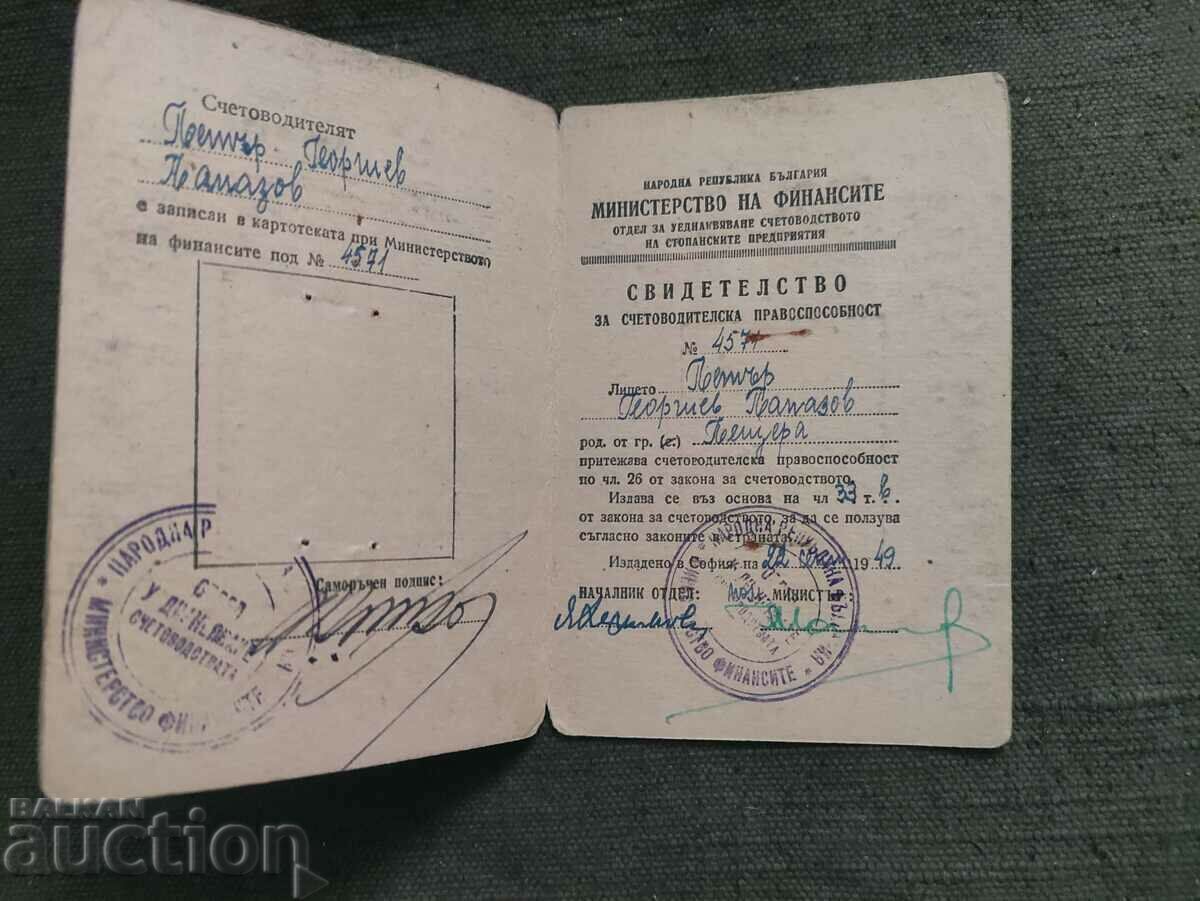 Счетоводителят
Петър Георгиев
Папазов
е записан в картотеката при Министерството
на финансите под № 4571
Саморъчен подпис:
НАРОДНА РЕПУБЛИКА БЪЛГАРИЯ
МИНИСТЕРСТВО НА ФИНАНСИТЕ
ОТДЕЛ ЗА УЕДНАКВЯВАНЕ СЧЕТОВОДСТВОТО
НА СТОПАНСКИТЕ ПРЕДПРИЯТИЯ
СВИДЕТЕЛСТВО
ЗА СЧЕТОВОДИТЕЛСКА ПРАВОСПОСОБНОСТ
№ 4571
Лицето Петър
Георгиев Папазов
род. от гр. (с.) Пещера
притежава счетоводителска правоспособност
по чл. 26 от закона за счетоводството.
Издава се въз основа на чл 33 т. в.
от закона за счетоводството, за да се ползува
съгласно законите в страната.
Издадено в София, на 22 1949
НАЧАЛНИК ОТДЕЛ: МИНИСТЪР:
НАРОДНА
МИНИСТЕРСТВО
СЧЕТОВОДСТВАТА
НАРОДНА РЕПУБЛИКА
ФИНАНСИТЕ
BALKAN
auction